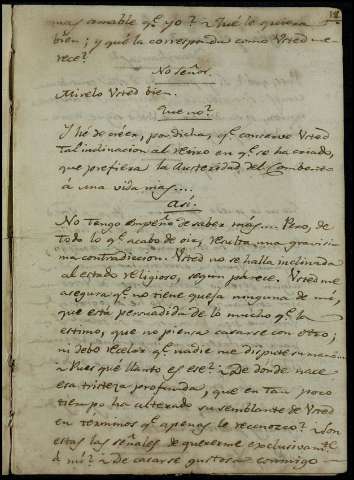 18
mas amable q.e yo? Que le quiera
bien; y que la corresponda como Vsted me-
rece?
No señor.
Mirelo Vsted bien.
Que no?
Y hé de creer, por dicha, q.e conserve Vsted
tal inclinacion al retiro en q.e se ha criado,
que prefiera la Austeridad del Combento
á una vida mas....
Asi.
No tengo empeño de saber mas... Pero, de
todo lo q.e acabo de oir, resulta una gravisi-
ma contradiccion. Vsted no se halla inclinada
al estado religioso, segun parece. Vsted me
asegura q.e no tiene queja ninguna de mi,
que está persuadida de lo mucho q.e la
estimo, que no piensa casarse con otro;
ni debo recelar q.e nadie me dispute su mano...
Pues qué llanto es ese? De donde nace
esa tristeza profunda, que en tan poco
tiempo ha alterado su semblante de Vsted
en terminos q.e apenas le reconozco? Son
estas las señales de quererme exclusivam.te
á mi? De casarse gustosa conmigo